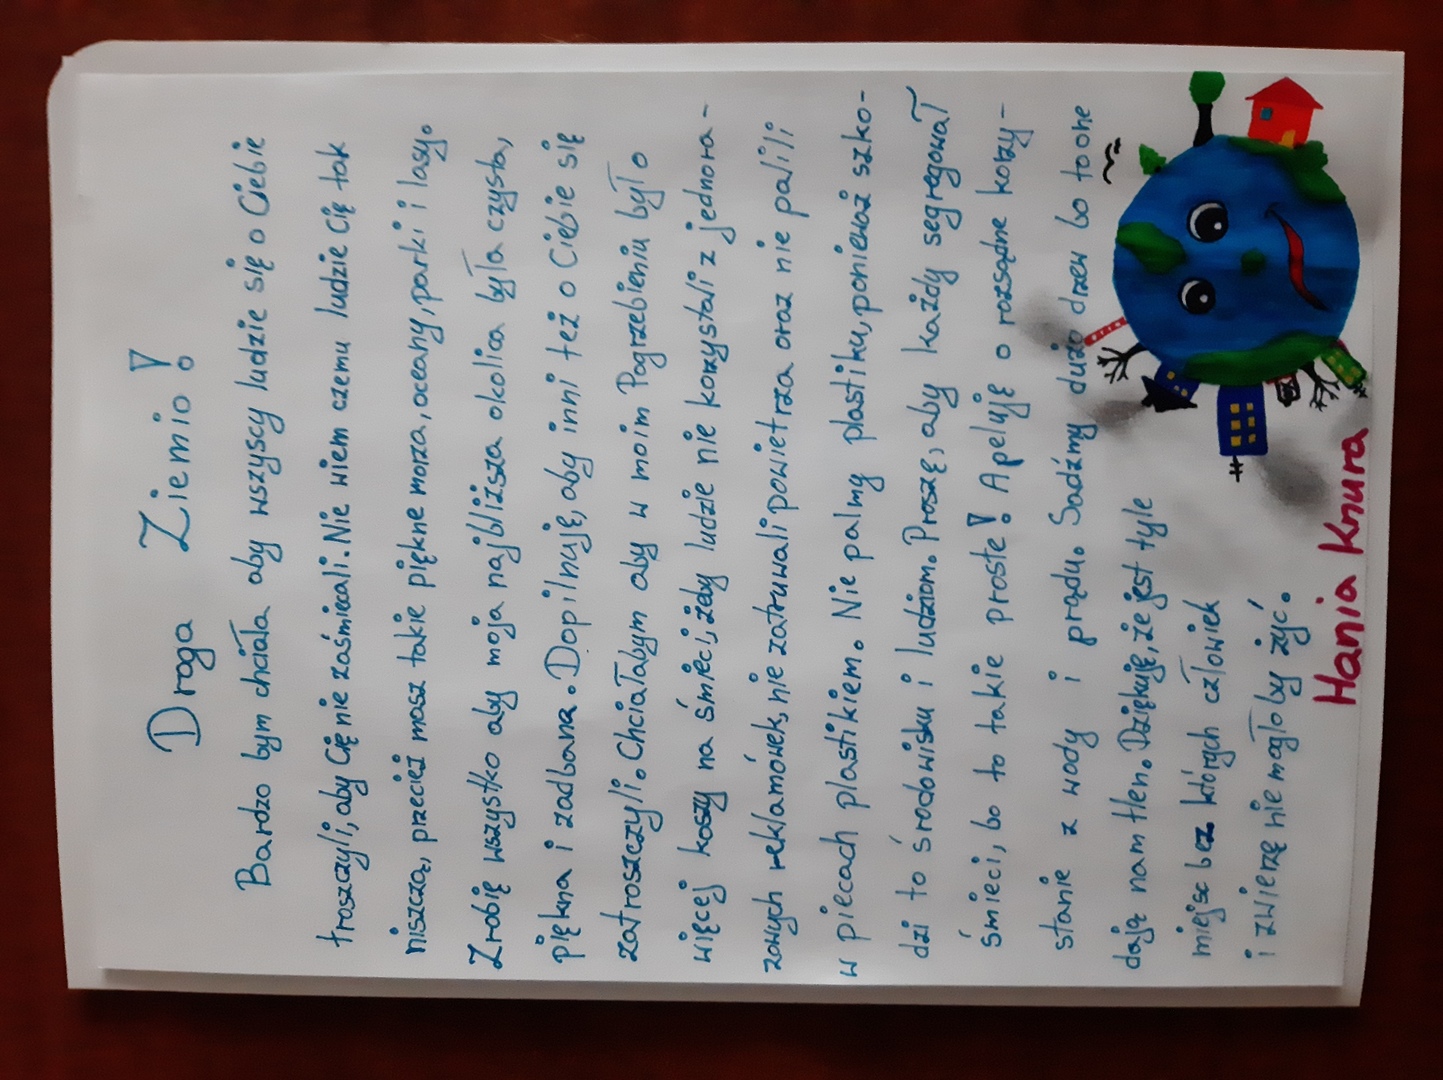 Droga Ziemio!
Bardzo bym chciała aby wszyscy ludzie się o Ciebie
troszczyli, aby Cię nie zaśmiecali. Nie wiem czemu ludzie Cię tak
niszczą, przecież masz takie piękne morza, oceany, parki i lasy.
Zrobię wszystko aby moja najbliższa okolica była czysta,
piękna i zadbana. Dopilnuję, aby inni też o Ciebie się
zatroszczyli. Chciałabym aby w moim Pogrzebieniu było
więcej koszy na śmieci, żeby ludzie nie korzystali z jednora-
zowych reklamówek, nie zatruwali powietrza oraz nie palili
w piecach plastikiem. Nie palmy plastiku, ponieważ szko-
dzi to środowisku i ludziom. Proszę, aby każdy segregował
śmieci, bo to takie proste! Apeluję o rozsądne korzy-
stanie z wody i prądu. Sadźmy dużo drzew bo to one
dają nam tlen. Dziękuję, że jest tyle
miejsc bez których człowiek
i zwierzę nie mogłoby żyć.
Hania Knura